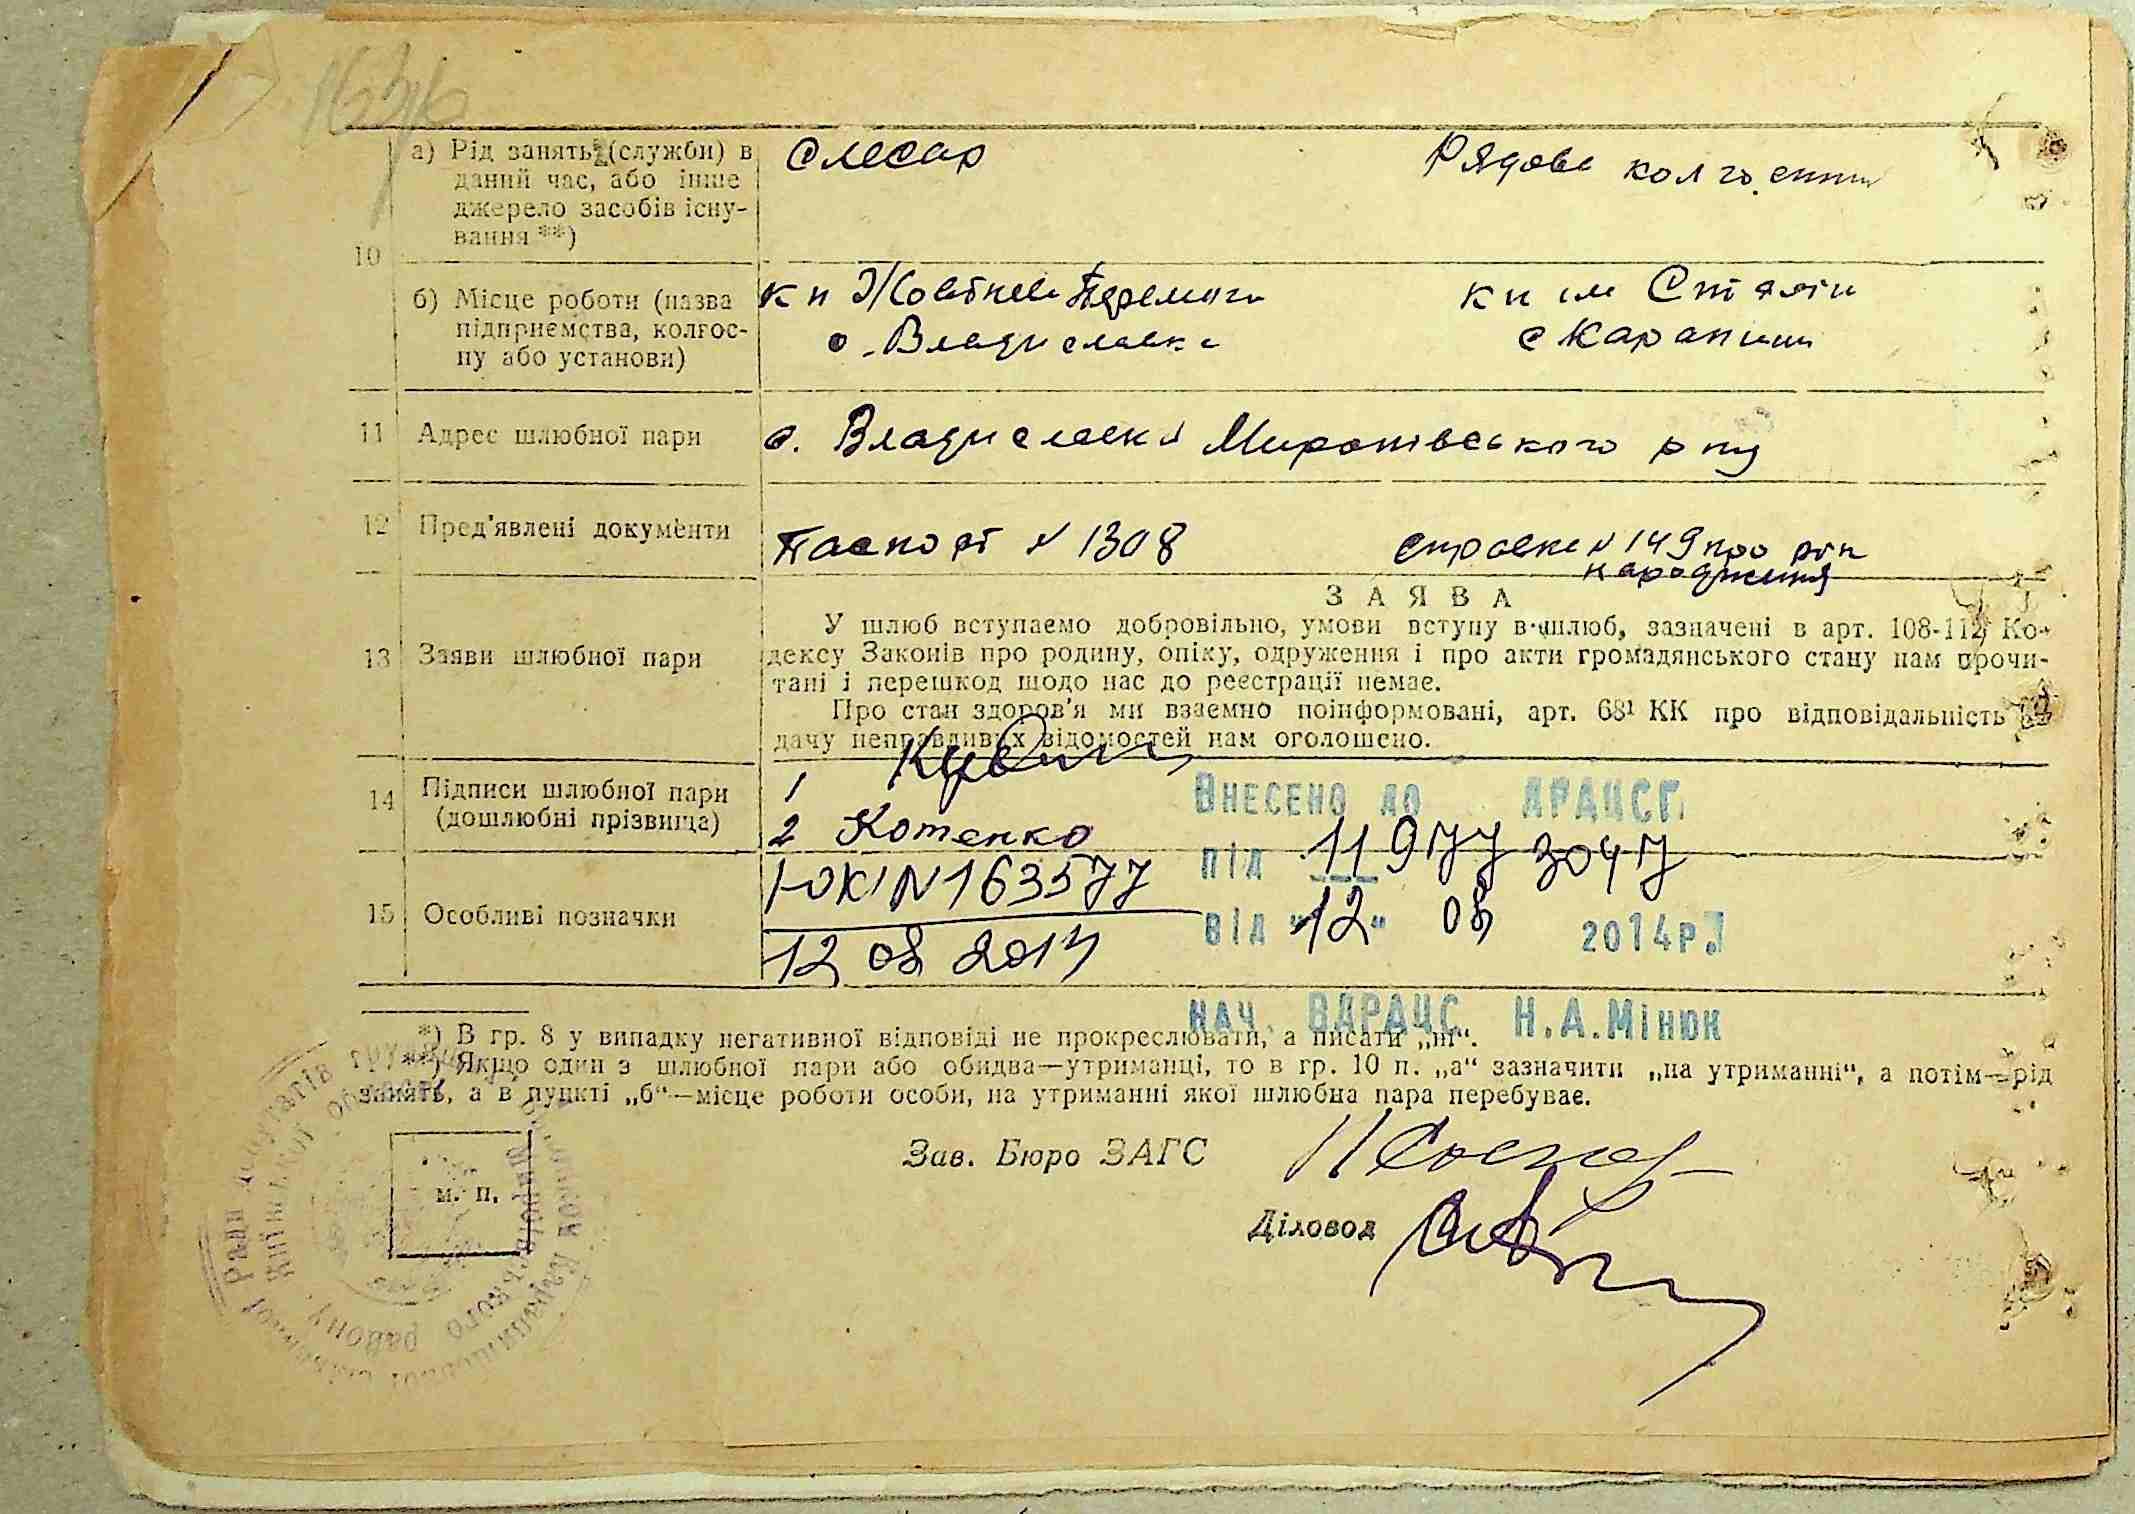 а) Рід занять (служби) в
даний час, або інше
джерело засобів існу-
вання **)
Слесар
Рядова
10
б) Місце роботи (назва
підприємства, колгос-
пу або установи)
кп Жовтнева Перемога
с. Владиславка
кп ім Сталін
с Карапиши
11 Адрес шлюбної пари
с. Владиславка Миронівського р ну
12 Пред'явлені документи
Паспорт N 1308
справка N 149 про
народження
13 Заяви шлюбної пари
ЗАЯВА
У шлюб вступаємо добровільно, умови вступу в шлюб, зазначені в арт. 108-112 Ко-
дексу Законів про родину, опіку, одруження і про акти громадянського стану нам прочи-
тані і перешкод щодо нас до реєстрації немає.
Про стан здоров'я ми взаємно поінформовані, арт. 68¹ КК про відповідальність за
дачу неправдивих відомостей нам оголошено.
14 Підписи шлюбної пари
(дошлюбні прізвища)
1
2 Котенко
Внесено до ДРАЦСГ
під 11977 3047
від "12" 08 2014р.
15 Особливі позначки
І-ОК N 163577
12 08 2014
нач. ВДРАЦС Н.А.Мінюк
*) В гр. 8 у випадку негативної відповіді не прокреслювати, а писати „ні“.
**) Якщо один з шлюбної пари або обидва—утриманці, то в гр. 10 п. „а“ зазначити „на утриманні“, а потім—рід
занять, а в пункті „б“—місце роботи особи, на утриманні якої шлюбна пара перебуває.
Зав. Бюро ЗАГС
м. п.
Діловод